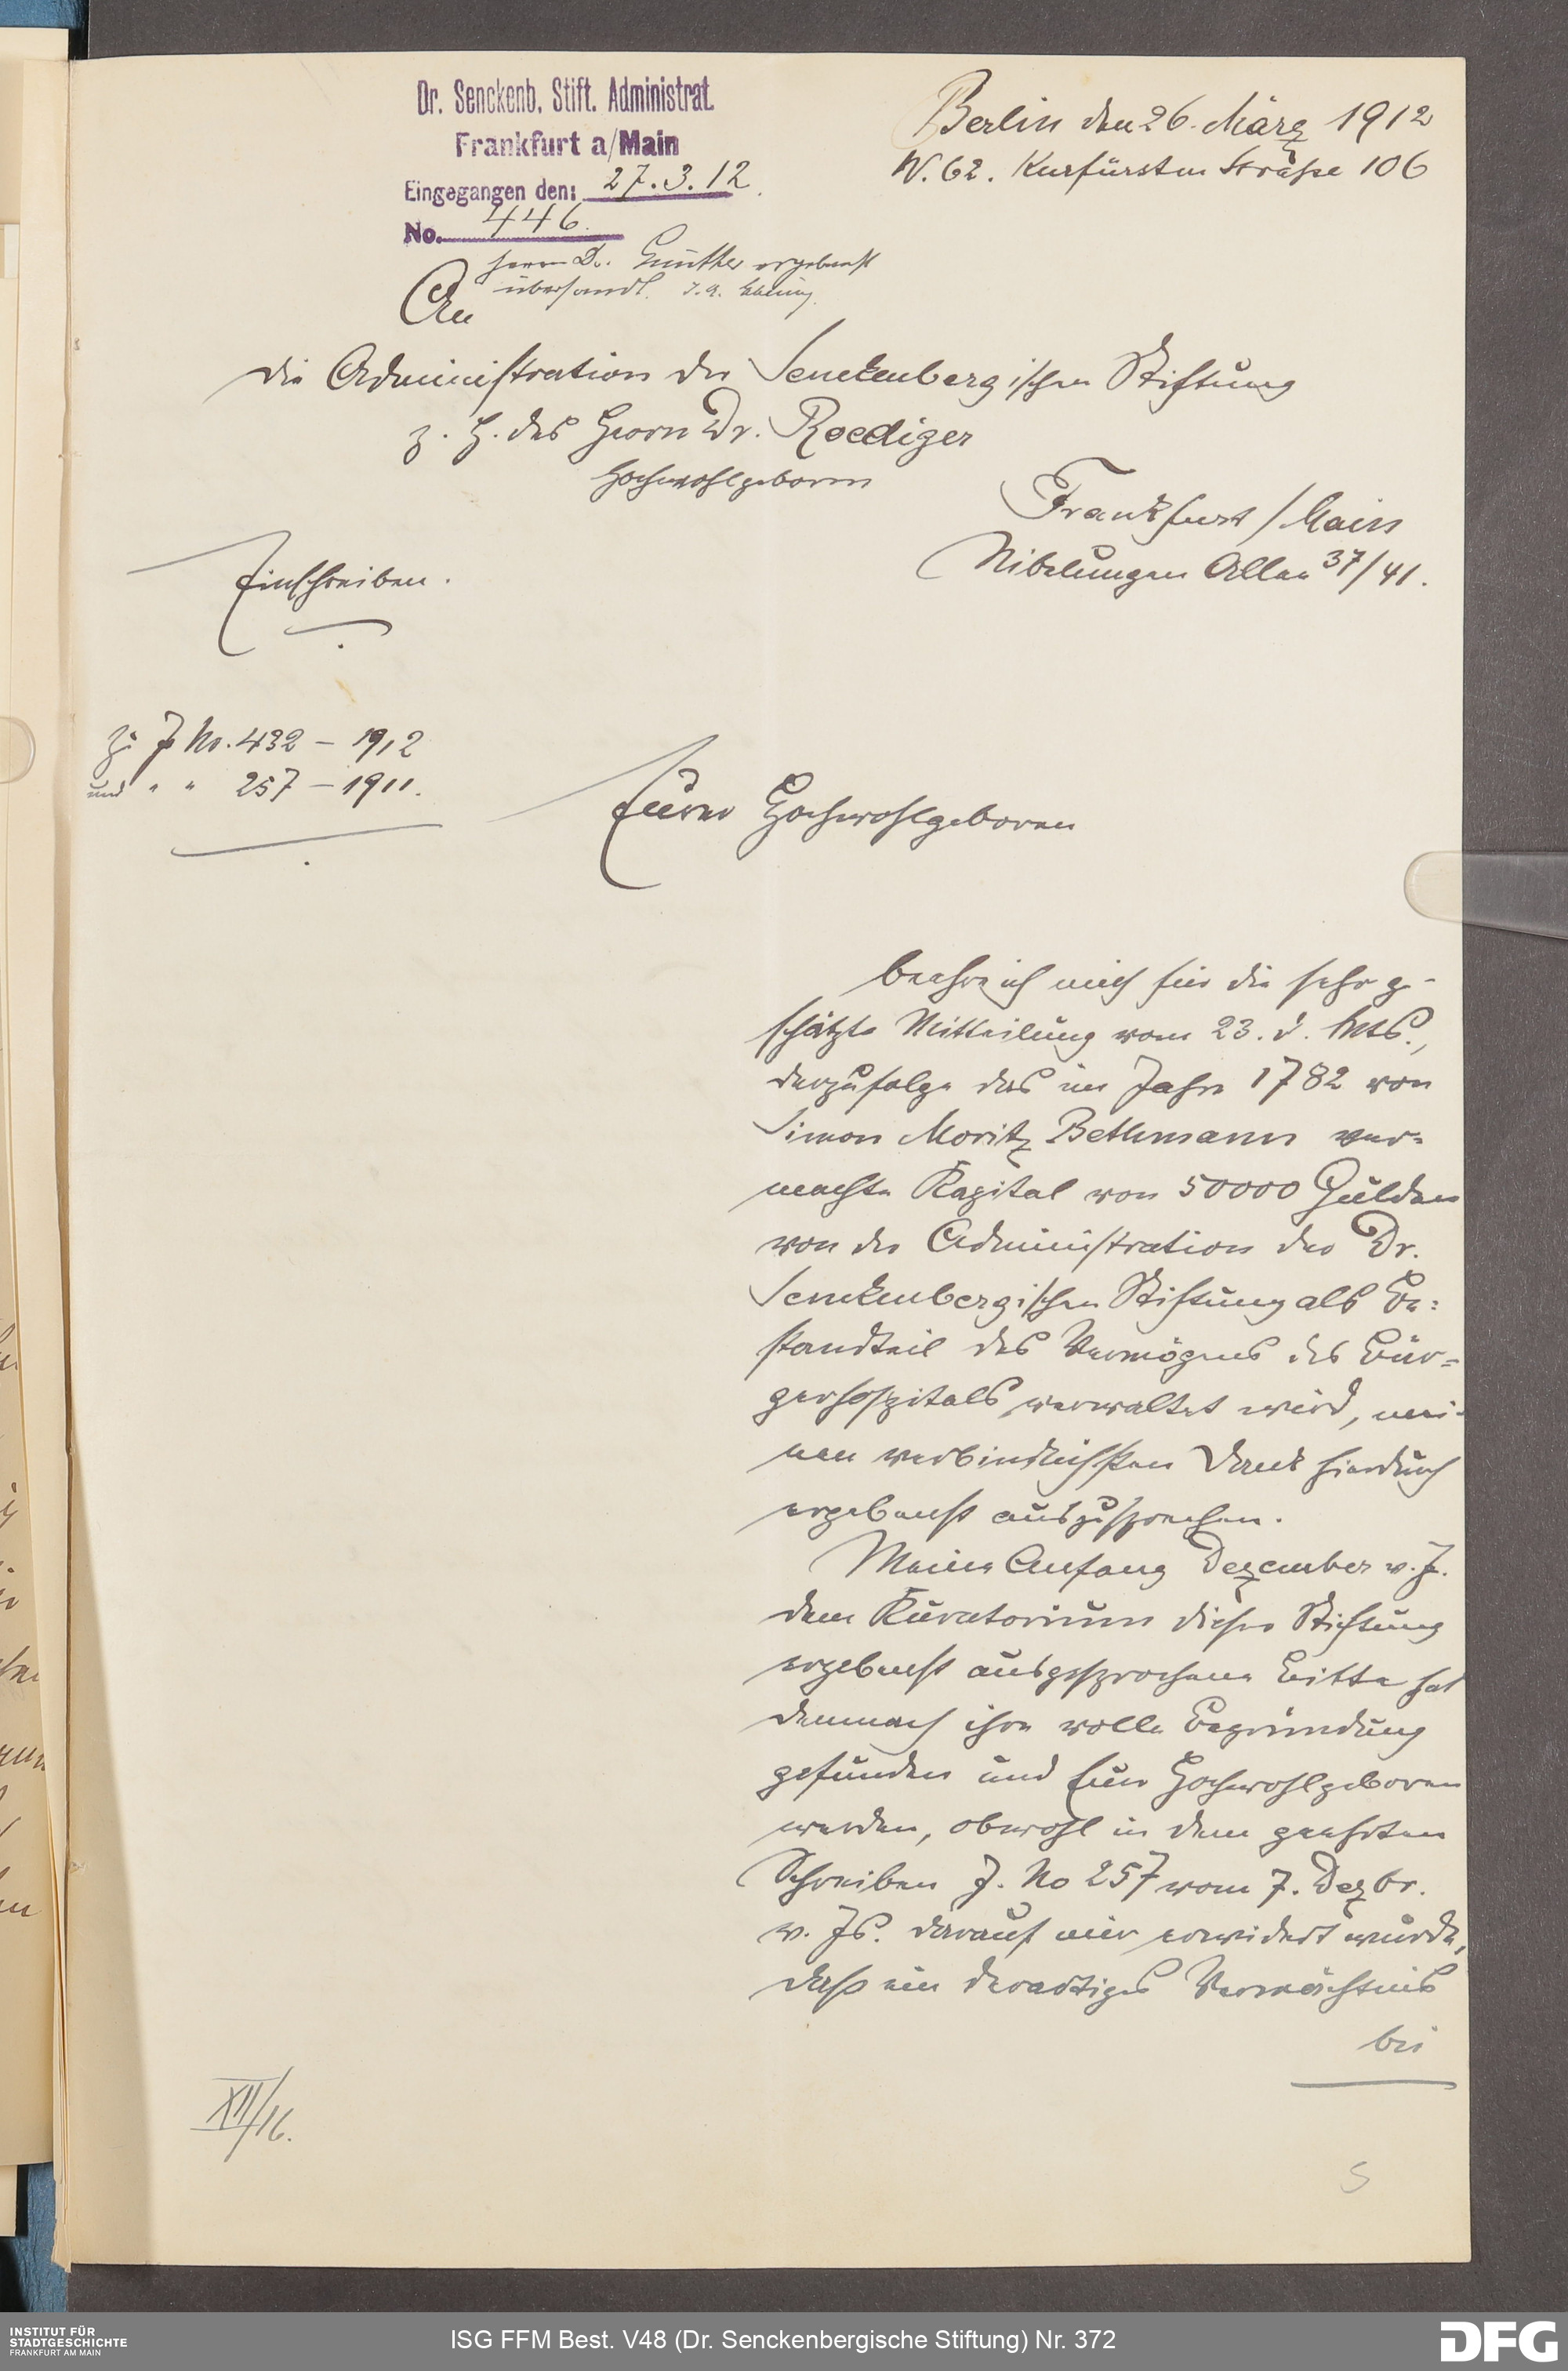 Dr. Senckenb. Stift. Administrat.
Frankfurt a/Main
Eingegangen den: 27.3.12.
No. 446.
Herrn Dr. Günther ergebenst
übersandt. I. A.
Berlin den 26. März 1912
W. 62. Kurfürsten Straße 106
An
die Administration der Senckenbergischen Stiftung
z. H. des Herrn Dr. Roediger
Hochwohlgeboren
Frankfurt / Main
Nibelungen Allee 37/41.
Einschreiben.
Zu J. No. 432 – 1912
und " " 257 – 1911.
Eurer Hochwohlgeboren
beehre ich mich für die sehr ge-
schätzte Mitteilung vom 23. d. Mts.,
derzufolge das im Jahre 1782 von
Simon Moritz Bethmann ver-
machte Kapital von 50000 Gulden
von der Administration der Dr.
Senckenbergischen Stiftung als Be-
standteil des Vermögens des Bür-
gerhospitals verwaltet wird, mei-
nen verbindlichsten Dank hierdurch
ergebenst auszusprechen.
Meine Anfang Dezember v. J.
dem Kuratorium dieser Stiftung
ergebenst ausgesprochene Bitte hat
demnach ihre volle Begründung
gefunden und Eure Hochwohlgeboren
werden, obwohl in dem geehrten
Schreiben J. No 257 vom 7. Dezbr.
v. Js. darauf mir erwidert wurde,
daß ein derartiges Vermächtnis
bei
XII/16.
S
INSTITUT FÜR
STADTGESCHICHTE
FRANKFURT AM MAIN
ISG FFM Best. V48 (Dr. Senckenbergische Stiftung) Nr. 372
DFG